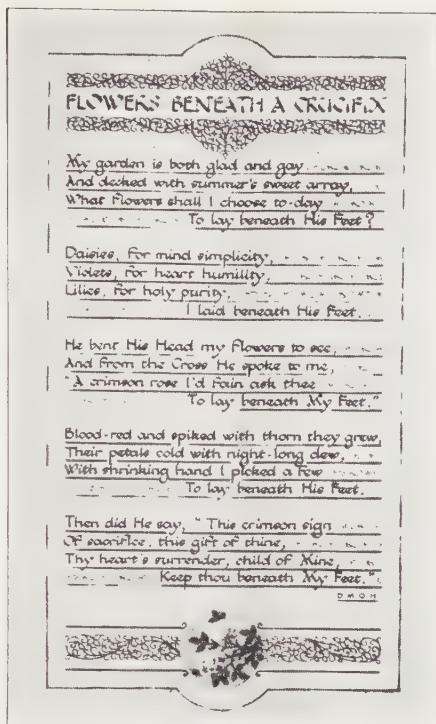 FLOWERS BENEATH A CRUCIFIX
My garden is both glad and gay
And decked with summer's sweet array,
What Flowers shall I choose to-day
To lay beneath His Feet?
Daisies, for mind simplicity,
Violets, for heart humility,
Lilies, for holy purity,
I laid beneath His Feet.
He bent His Head my Flowers to see,
And from the Cross He spoke to me,
"A crimson rose I'd fain ask thee
To lay beneath My Feet."
Blood-red and spiked with thorn they grew,
Their petals cold with night-long dew,
With shrinking hand I picked a few
To lay beneath His Feet.
Then did He say, "This crimson sign
Of sacrifice, this gift of thine,
Thy heart's surrender, child of Mine,
Keep thou beneath My Feet."
D M O H